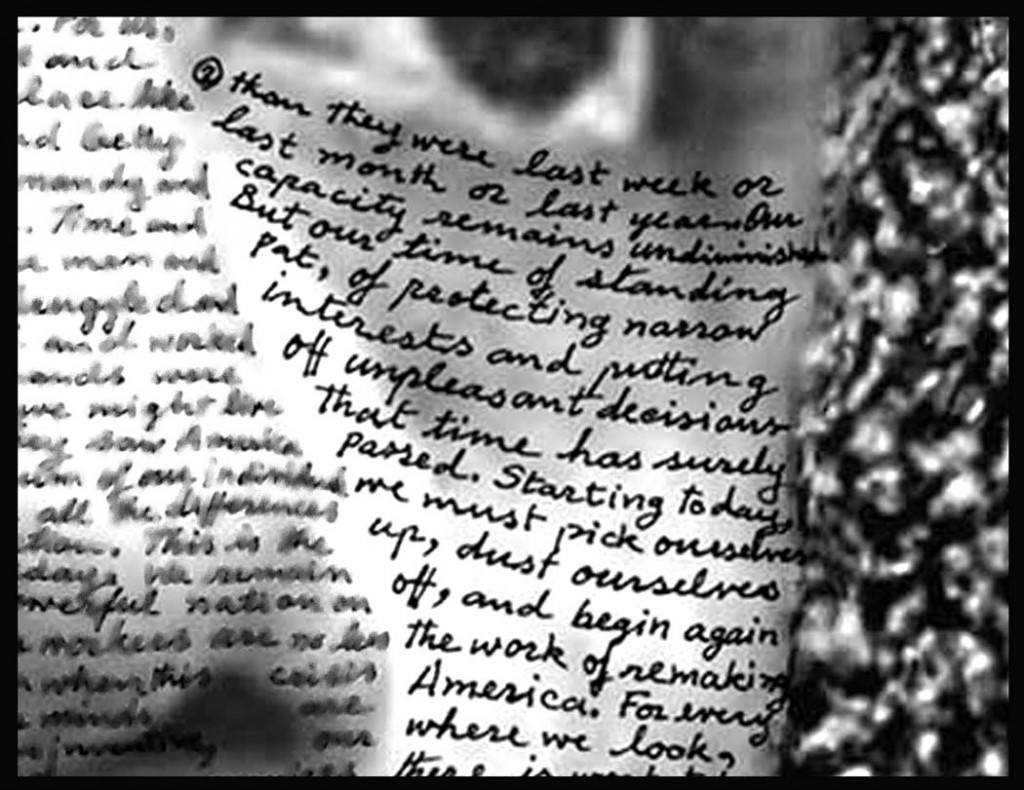 . For us,
and
lace like
d Getty
mandy and
. Time and
e men and
uggled and
and worked
ands were
we might live
ey saw America
um of our individual
all the differences
tion. This is the
day. We remain
werful nation on
workers are no less
when this crisis
minds are
inventive, our
② than they were last week or
last month or last year. Our
capacity remains undiminished.
But our time of standing
pat, of protecting narrow
interests and putting
off unpleasant decisions
That time has surely
passed. Starting today,
we must pick ourselves
up, dust ourselves
off, and begin again
the work of remaking
America. For every
where we look,
there is work to